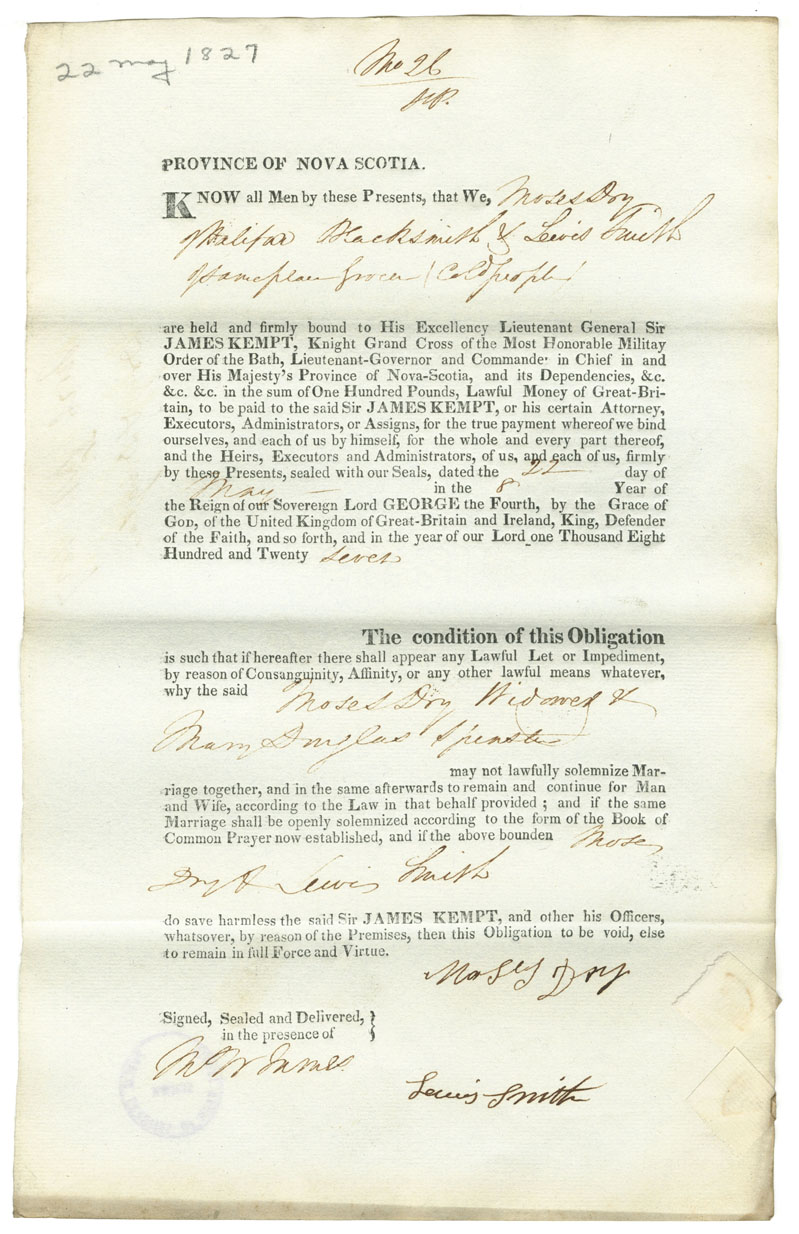 22 may 1827
No 26
PROVINCE OF NOVA SCOTIA.
KNOW all Men by these Presents, that We, Moses Dry
of Halifax Blacksmith & Lewis Smith
of same place Grocer (Cold people)
are held and firmly bound to His Excellency Lieutenant General Sir
JAMES KEMPT, Knight Grand Cross of the Most Honorable Militay
Order of the Bath, Lieutenant-Governor and Commande in Chief in and
over His Majesty's Province of Nova-Scotia, and its Dependencies, &c.
&c. &c. in the sum of One Hundred Pounds, Lawful Money of Great-Bri-
tain, to be paid to the said Sir JAMES KEMPT, or his certain Attorney,
Executors, Administrators, or Assigns, for the true payment whereof we bind
ourselves, and each of us by himself, for the whole and every part thereof,
and the Heirs, Executors and Administrators, of us, and each of us, firmly
by these Presents, sealed with our Seals, dated the 22 day of
May in the 8 Year of
the Reign of our Sovereign Lord GEORGE the Fourth, by the Grace of
God, of the United Kingdom of Great-Britain and Ireland, King, Defender
of the Faith, and so forth, and in the year of our Lord one Thousand Eight
Hundred and Twenty Seven
The condition of this Obligation
is such that if hereafter there shall appear any Lawful Let or Impediment,
by reason of Consanguinity, Affinity, or any other lawful means whatever,
why the said Moses Dry Widower &
Mary Douglas Spinster
may not lawfully solemnize Mar-
riage together, and in the same afterwards to remain and continue for Man
and Wife, according to the Law in that behalf provided ; and if the same
Marriage shall be openly solemnized according to the form of the Book of
Common Prayer now established, and if the above bounden Moses
Dry & Lewis Smith
do save harmless the said Sir JAMES KEMPT, and other his Officers,
whatsover, by reason of the Premises, then this Obligation to be void, else
to remain in full Force and Virtue.
Moses Dry
Signed, Sealed and Delivered, }
in the presence of
James
Lewis Smith